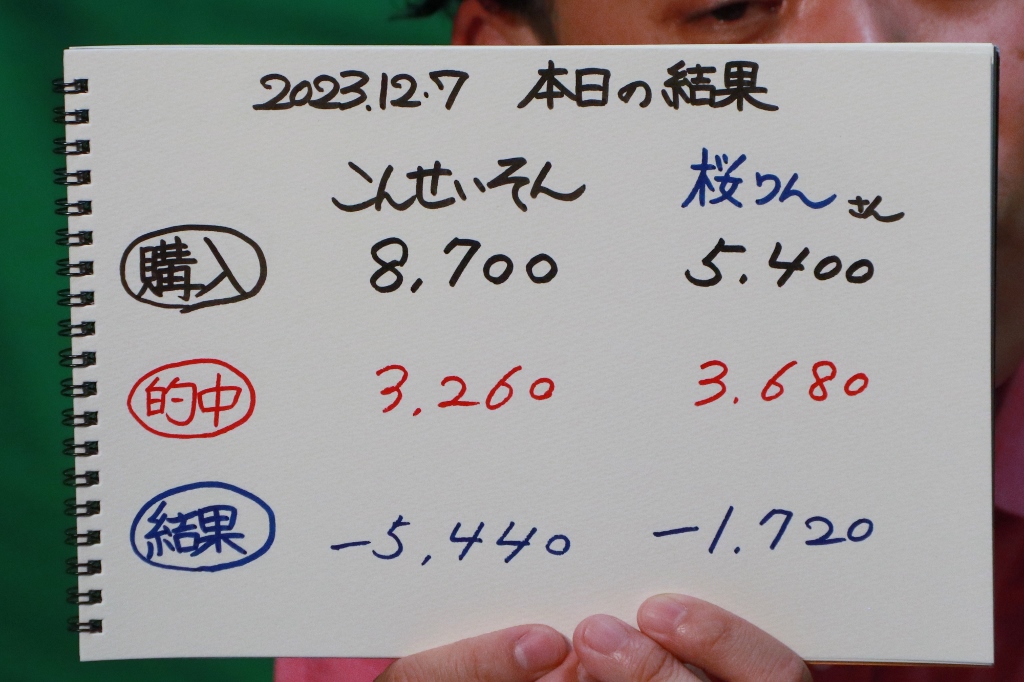 2023.12.7 本日の結果
こんせいそん 桜りんさん
購入 8,700 5.400
的中 3.260 3.680
結果 -5,440 -1.720